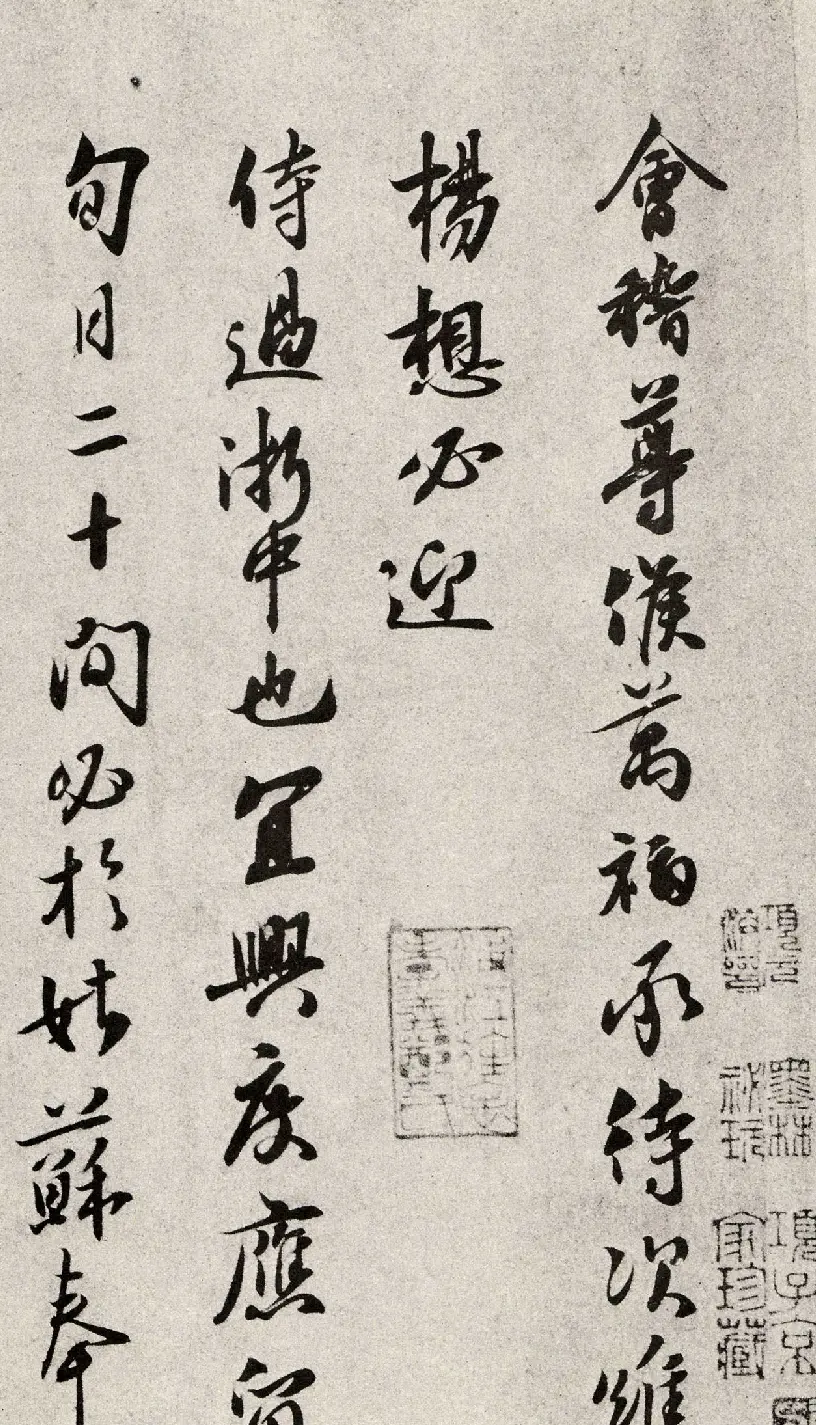 項元汴印
墨林祕玩
項子京家珍藏
會稽尊候萬福承待次維
楊想必迎
侍過浙中也宜興度應留
旬日二十間必於姑蘇奉